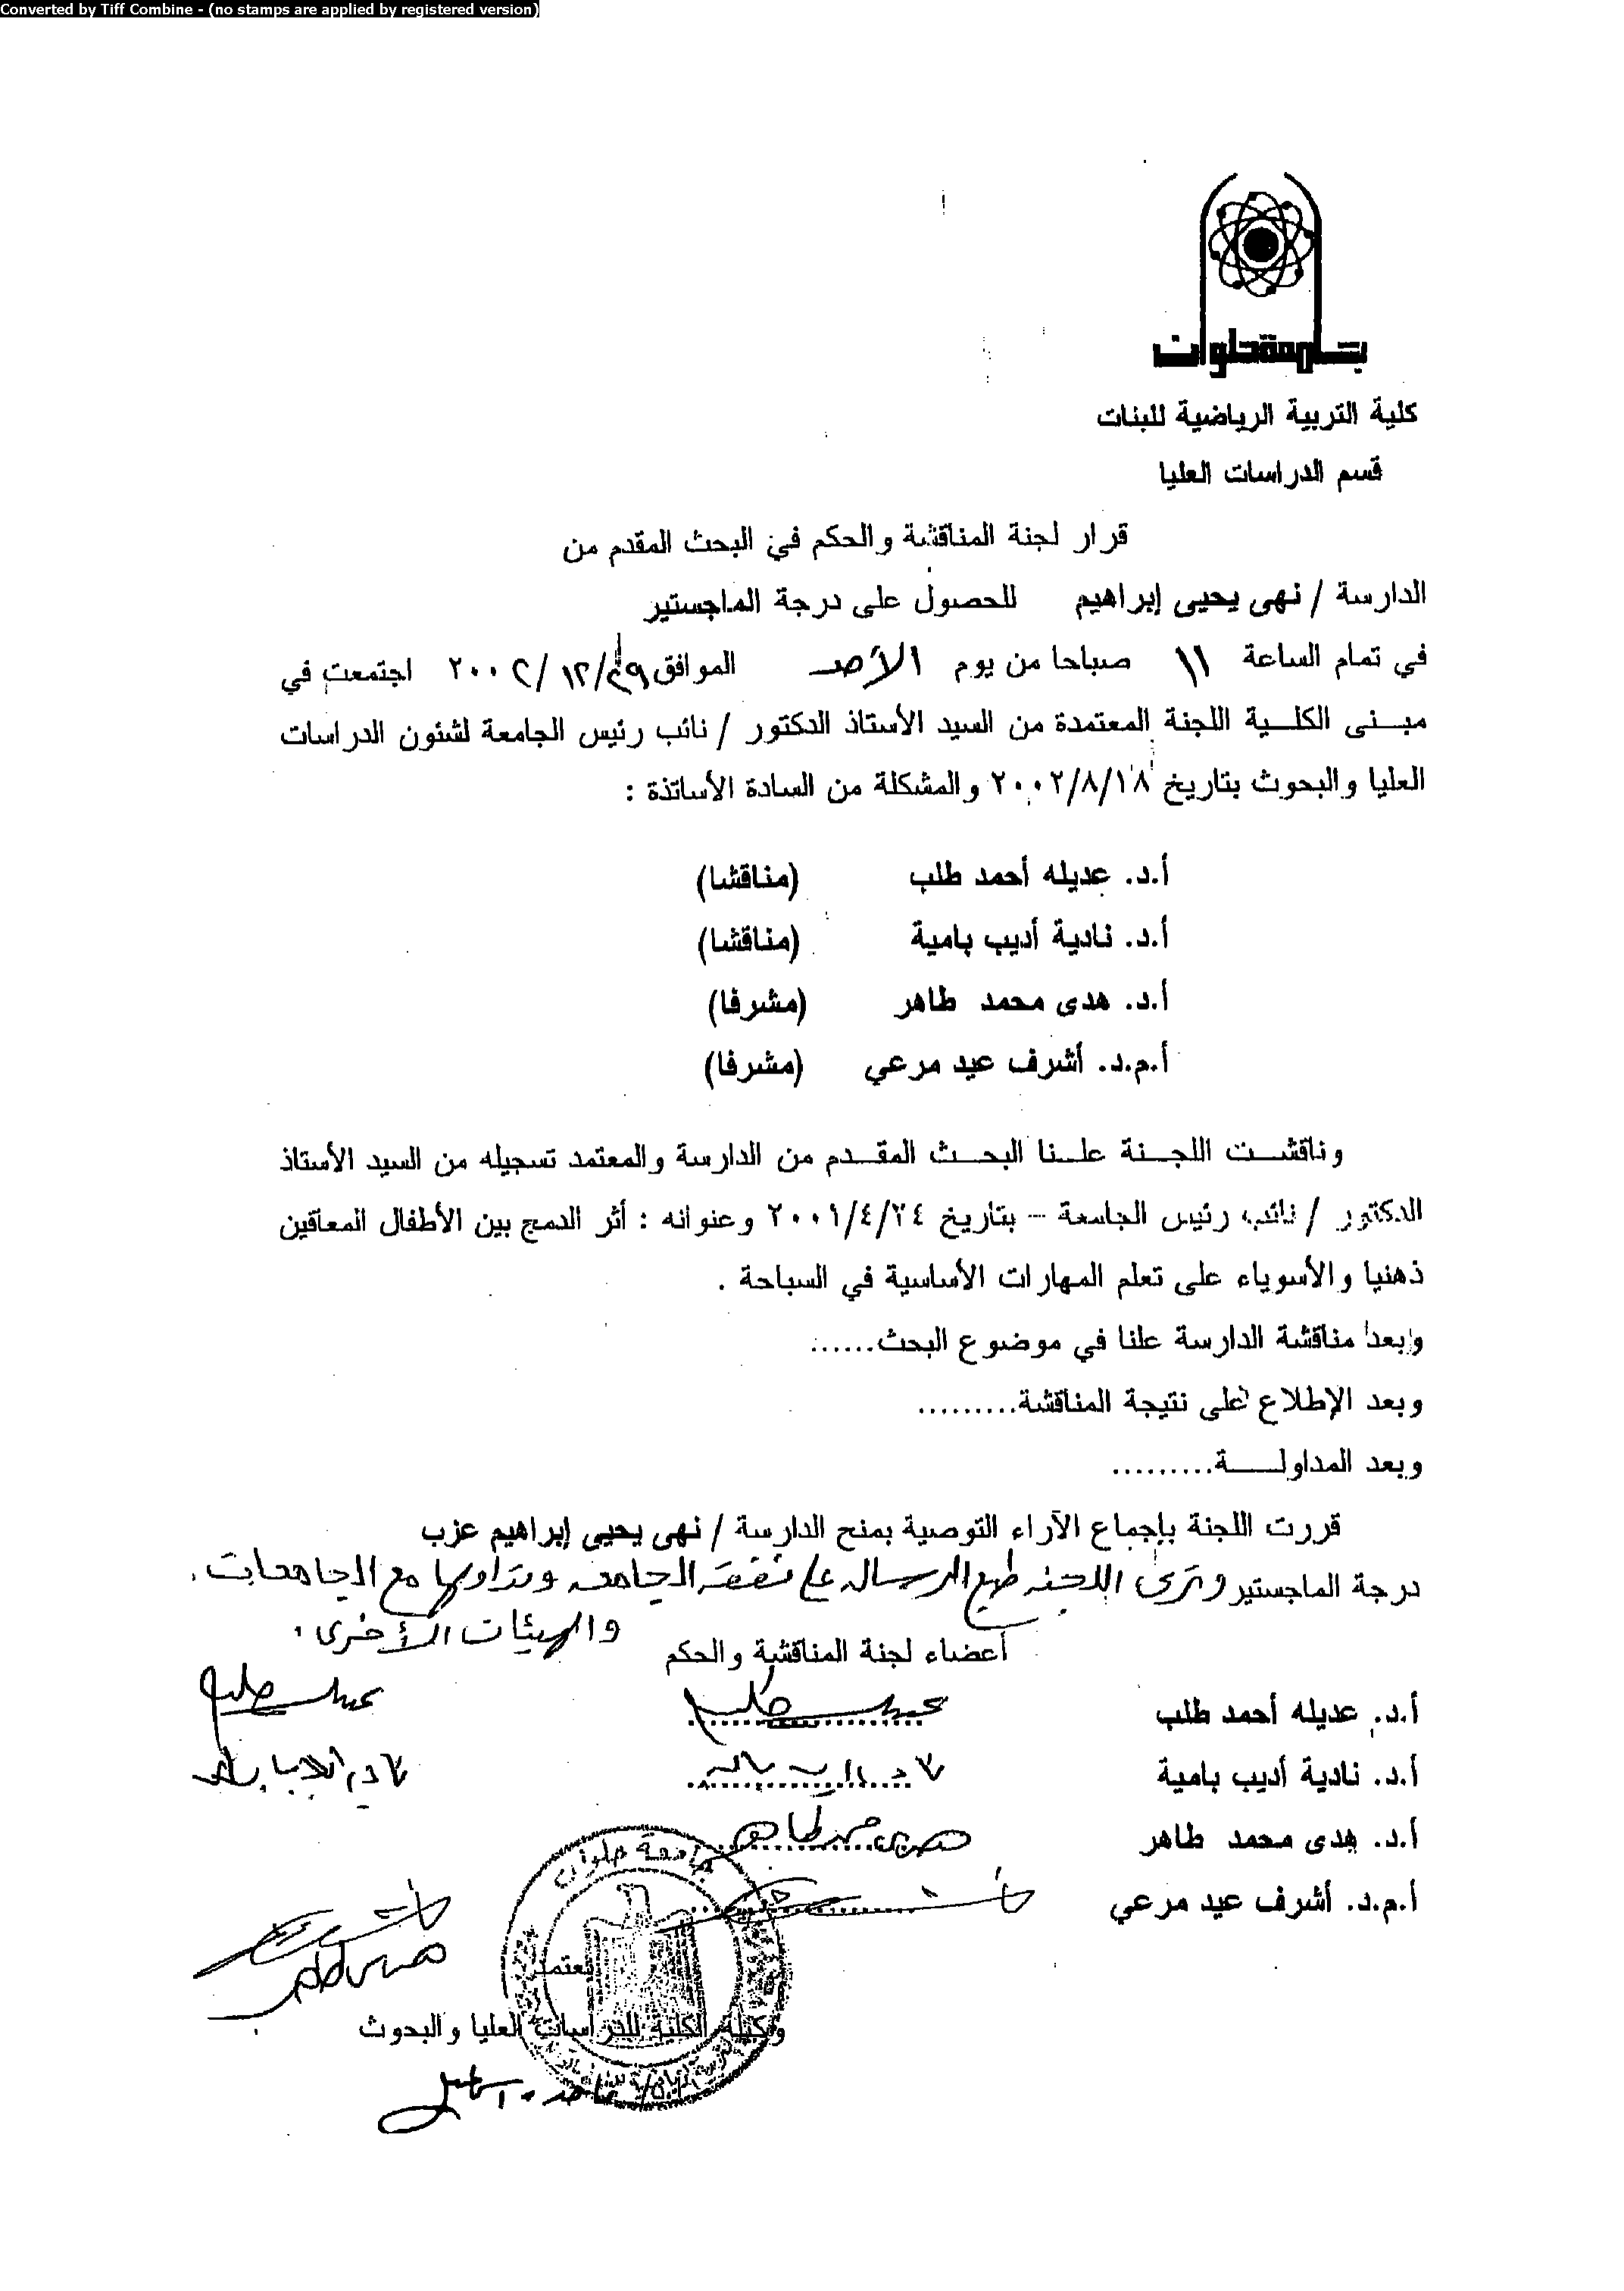 Converted by Tiff Combine - (no stamps are applied by registered version)
جامعة حلوان
كلية التربية الرياضية للبنات
قسم الدراسات العليا
قرار لجنة المناقشة والحكم في البحث المقدم من
الدارسة / نهى يحيى إبراهيم للحصول على درجة الماجستير
في تمام الساعة ١١ صباحا من يوم الأحد الموافق ٢٩/١٢/٢٠٠٢ اجتمعت في
مبنى الكلية اللجنة المعتمدة من السيد الأستاذ الدكتور / نائب رئيس الجامعة لشئون الدراسات
العليا والبحوث بتاريخ ٢٠٠٢/٨/١٨ والمشكلة من السادة الأساتذة :
أ.د. عديله أحمد طلب (مناقشا)
أ.د. نادية أديب بامية (مناقشا)
أ.د. هدى محمد طاهر (مشرفا)
أ.م.د. أشرف عيد مرعي (مشرفا)
وناقشت اللجنة علنا البحث المقدم من الدارسة والمعتمد تسجيله من السيد الأستاذ
الدكتور / نائب رئيس الجامعة – بتاريخ ٢٠٠١/٤/٢٤ وعنوانه : أثر الدمج بين الأطفال المعاقين
ذهنيا والأسوياء على تعلم المهارات الأساسية في السباحة .
وبعد مناقشة الدارسة علنا في موضوع البحث......
وبعد الإطلاع على نتيجة المناقشة.........
وبعد المداولة.........
قررت اللجنة بإجماع الآراء التوصية بمنح الدارسة / نهى يحيى إبراهيم عزب
درجة الماجستير وترى اللجنة طبع الرسالة على نفقة الجامعة وتداولها مع الجامعات
والهيئات الأخرى .
أعضاء لجنة المناقشة والحكم
أ.د. عديله أحمد طلب عديله طلب عديله طلب
أ.د. نادية أديب بامية
أ.د. هدى محمد طاهر هدى محمد طاهر
أ.م.د. أشرف عيد مرعي
جامعة حلوان
يعتمد
وكيلة الكلية للدراسات العليا والبحوث